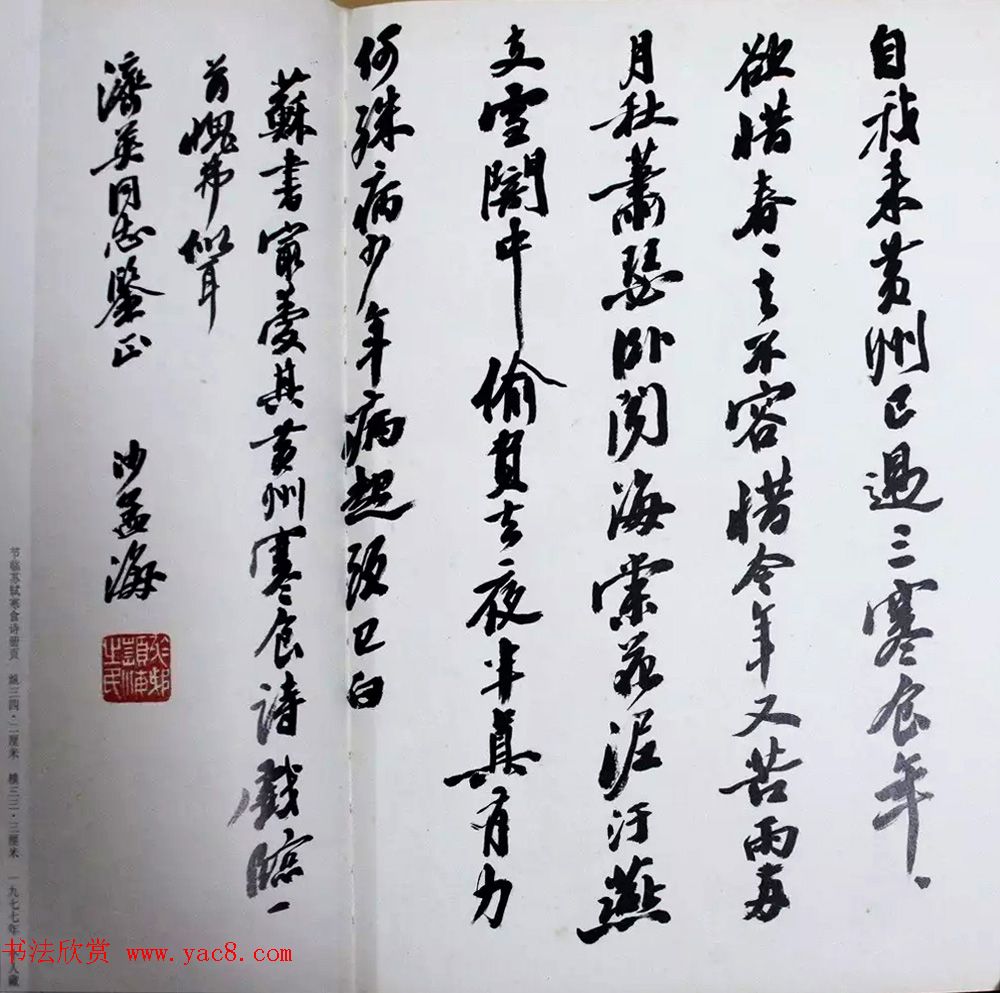 自我来黄州已過三寒食年、
欲惜春、去不容惜今年又苦雨兩
月秋蕭瑟卧聞海棠花泥汙燕
支雪闇中偷負去夜半真有力
何殊病少年病起頭已白
蘇書最愛其黄州寒食詩戲臨一
首愧弗似耳
濟英同志鑒正 沙孟海
节临苏轼寒食诗册页 纵三四·二厘米 横三三·三厘米 一九七七年 人藏
书法欣赏 www.yac8.com